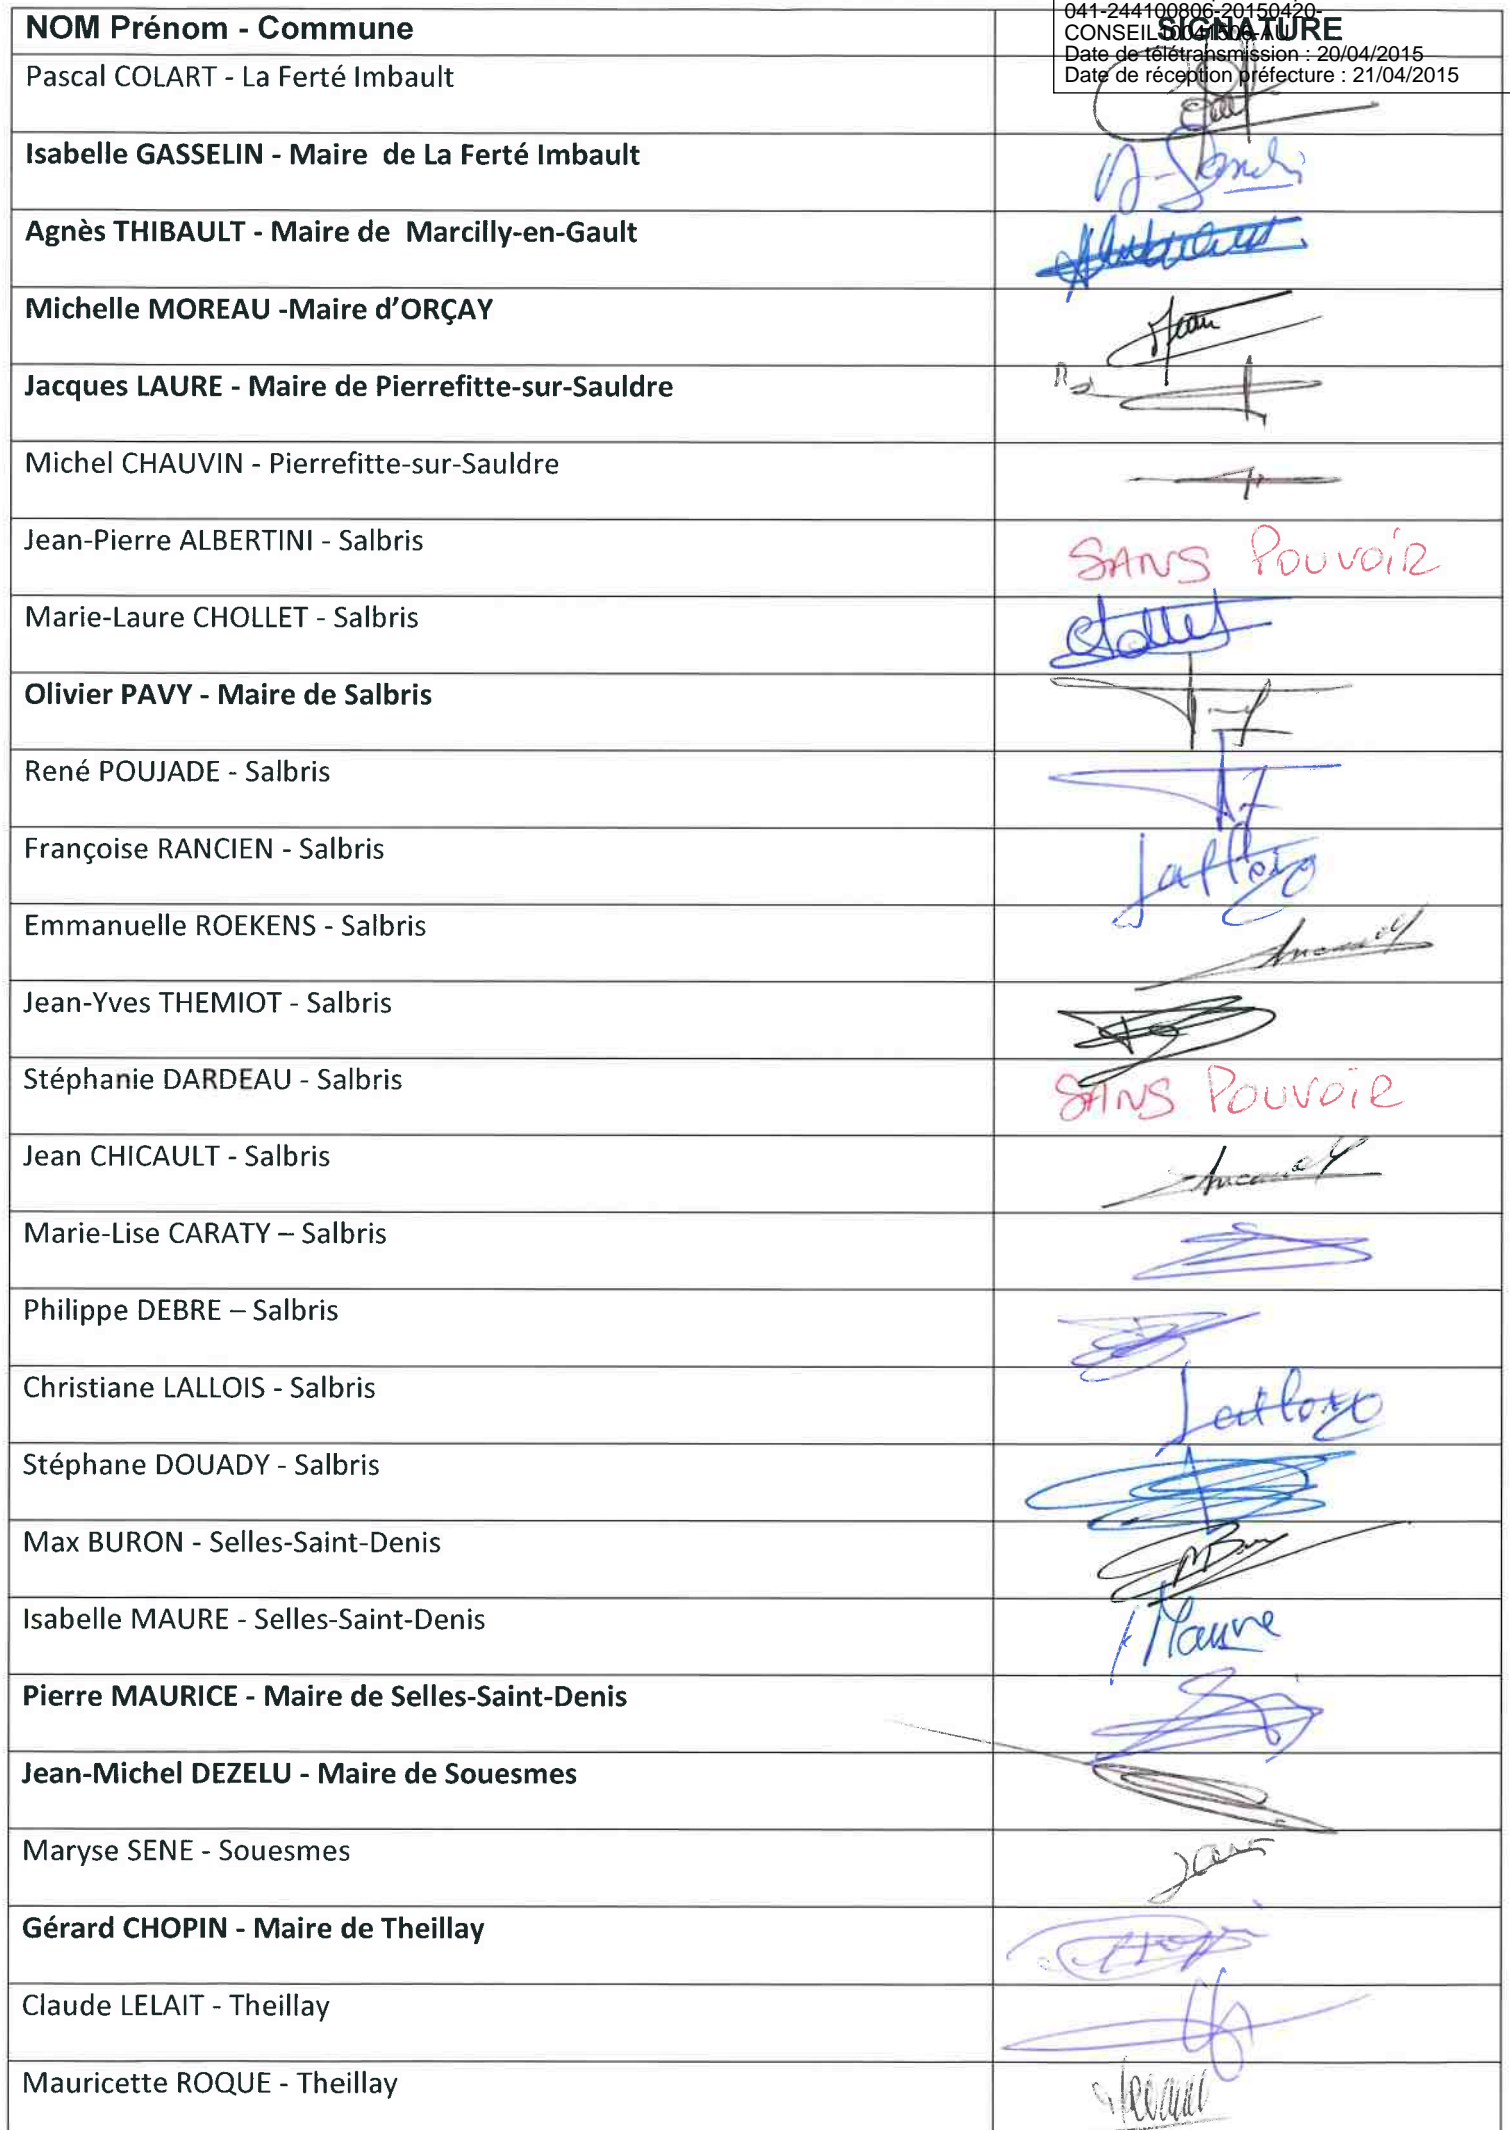 041-244100806-20150420-
NOM Prénom - Commune SIGNATURE
Date de télétransmission : 20/04/2015
Date de réception préfecture : 21/04/2015
Pascal COLART - La Ferté Imbault
Isabelle GASSELIN - Maire de La Ferté Imbault
Agnès THIBAULT - Maire de Marcilly-en-Gault
Michelle MOREAU -Maire d'ORÇAY
Jacques LAURE - Maire de Pierrefitte-sur-Sauldre
Michel CHAUVIN - Pierrefitte-sur-Sauldre
Jean-Pierre ALBERTINI - Salbris SANS POUVOIR
Marie-Laure CHOLLET - Salbris Chollet
Olivier PAVY - Maire de Salbris
René POUJADE - Salbris
Françoise RANCIEN - Salbris
Emmanuelle ROEKENS - Salbris
Jean-Yves THEMIOT - Salbris
Stéphanie DARDEAU - Salbris SANS POUVOIR
Jean CHICAULT - Salbris
Marie-Lise CARATY – Salbris
Philippe DEBRE – Salbris
Christiane LALLOIS - Salbris
Stéphane DOUADY - Salbris
Max BURON - Selles-Saint-Denis
Isabelle MAURE - Selles-Saint-Denis Maure
Pierre MAURICE - Maire de Selles-Saint-Denis
Jean-Michel DEZELU - Maire de Souesmes
Maryse SENE - Souesmes
Gérard CHOPIN - Maire de Theillay
Claude LELAIT - Theillay
Mauricette ROQUE - Theillay